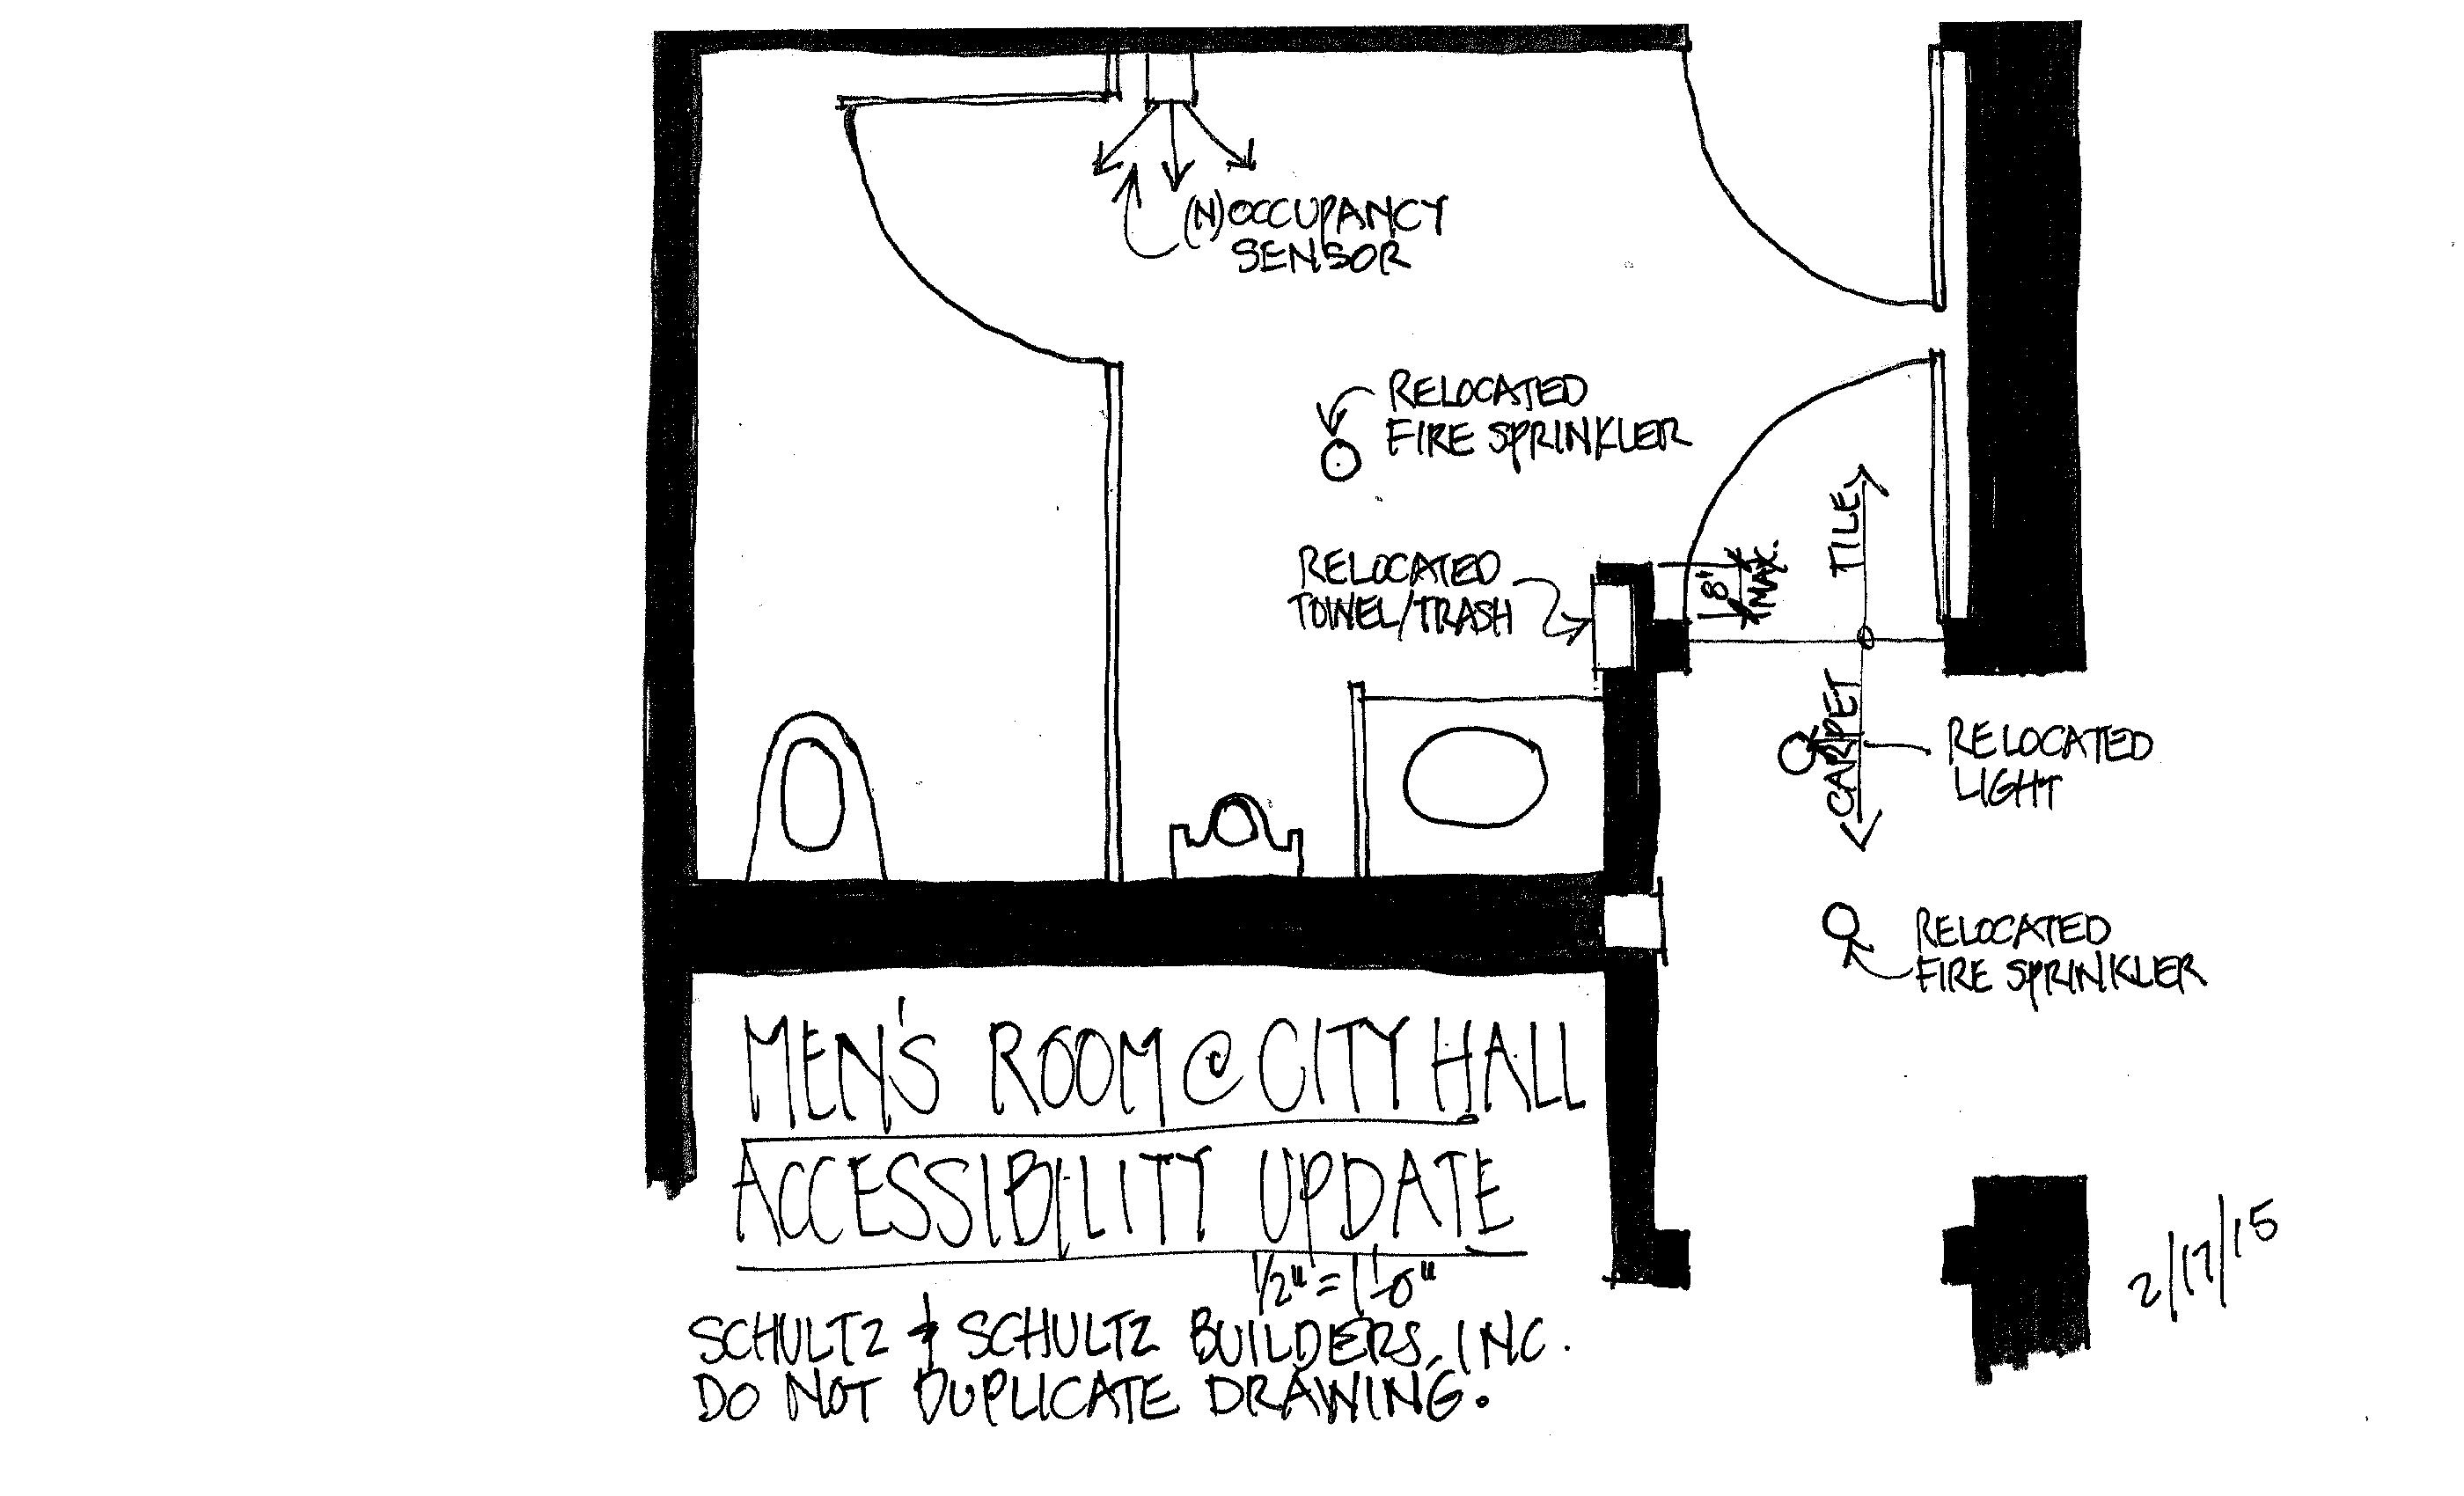 (N) OCCUPANCY
SENSOR
RELOCATED
FIRE SPRINKLER
RELOCATED
TOWEL/TRASH
8"
MAX.
TILE
CARPET
RELOCATED
LIGHT
RELOCATED
FIRE SPRINKLER
MEN'S ROOM @ CITY HALL
ACCESSIBILITY UPDATE
1/2" = 1'-0"
SCHULTZ & SCHULTZ BUILDERS, INC.
DO NOT DUPLICATE DRAWING.
2/17/15